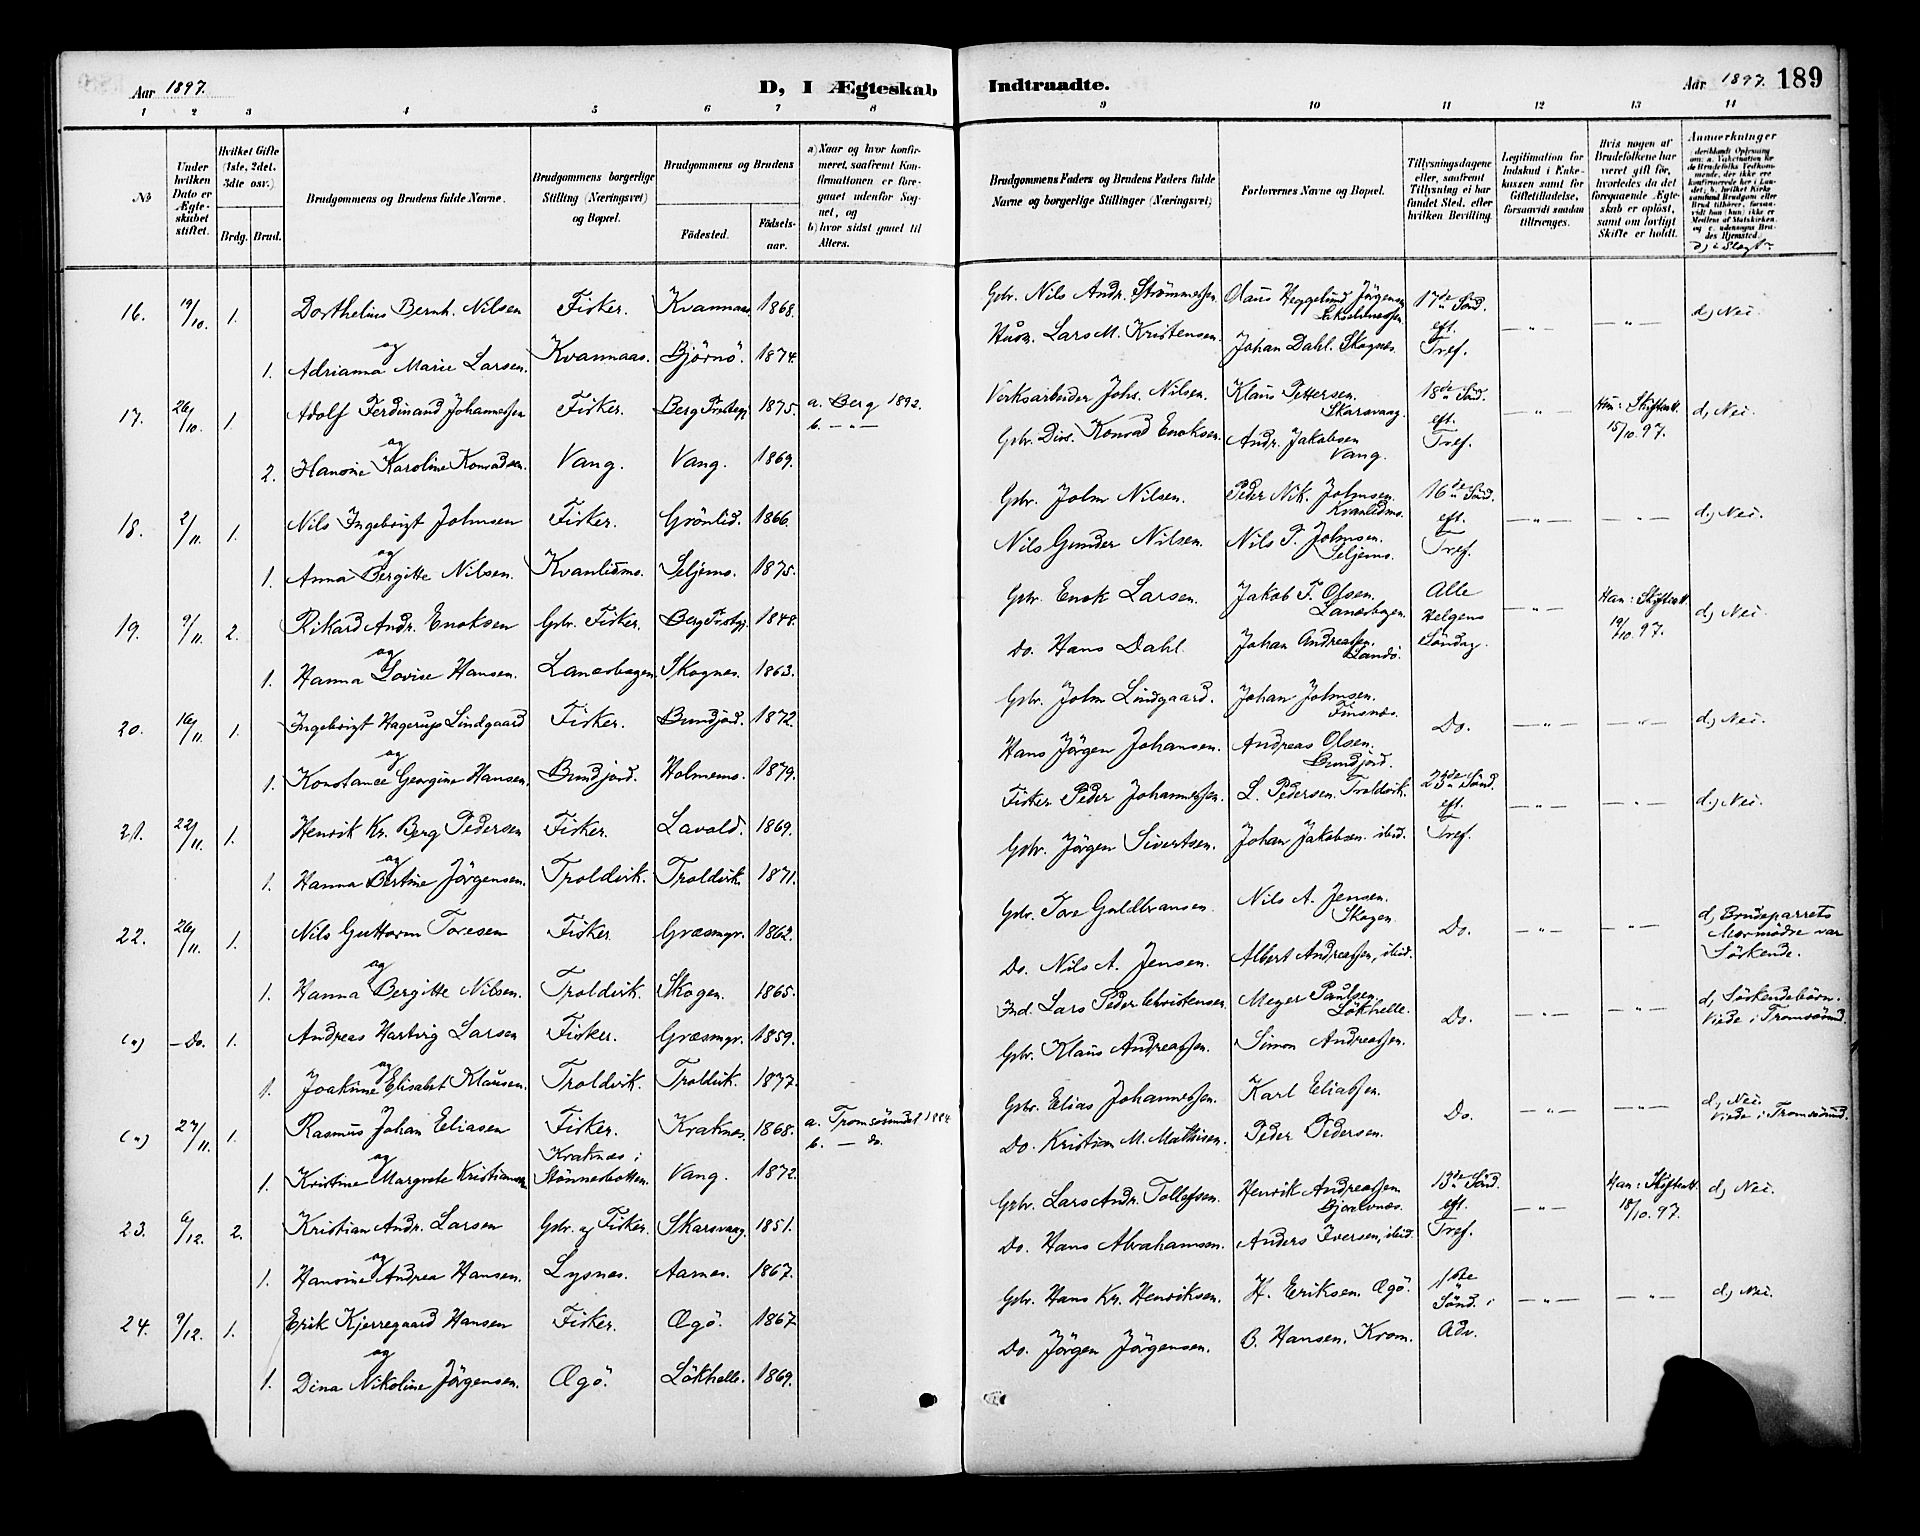 Aar 1897.
D, I Ægteskab
Indtraadte.
Aar 1897. 189
1 2 3 4 5 6 7 8 9 10 11 12 13 14
№
Under hvilken Dato er Ægteskabet stiftet.
Hvilket Gifte (1ste, 2det, 3die osv.)
Brdg. Brud.
Brudgommens og Brudens fulde Navne.
Brudgommens borgerlige Stilling (Næringsvei) og Bopæl.
Brudgommens og Brudens
Fødested.
Fødselsaar.
a) Naar og hvor konfirmeret, saafremt Konfirmationen er foregaaet udenfor Sognet, og
b) hvor sidst gaaet til Alters.
Brudgommens Faders og Brudens Faders fulde Navne og borgerlige Stillinger (Næringsvei)
Forlovernes Navne og Bopæl.
Tillysningsdagene eller, saafremt Tillysning ei har fundet Sted, efter hvilken Bevilling.
Legitimation for Indskud i Enkekassen samt for Giftetilladelse, forsaavidt saadan tiltrænges.
Hvis nogen af Brudefolkene har været gift før, hvorledes da det foregaaende Ægteskab er opløst, samt om lovligt Skifte er holdt.
Anmerkninger
d) i Slægt
16. 19/10. 1. Dorthelius Bernh. Nilsen Fisker. Kvannaas 1868. Gbr. Nils Andr. Strømmessen. Olaus Heggelund Jörgensen 17de Sönd. eft. Tref. —"— —"— d, Nei.
og
1. Adrianna Marie Larsen. Kvannaas. Björnö. 1874. Husm. Lars M. Kristensen. Johan Dahl. Skognes.
17. 26/10. 1 Adolf Ferdinand Johannessen Fisker. Berg Prstgj. 1875. a. Berg 1892. b. —"— Verksarbeider Johs. Nilsen. Klaus Pettersen. Skarsvaag. 18de Sönd. eft. Tref. —"— Hun: Skifteatt. 15/10.97. d, Nei.
og
2. Hansine Karoline Konradsen. Vang. Vang. 1869. Gbr. Div. Konrad Enoksen. Andr. Jakobsen Vang.
18. 2/11. 1. Nils Ingebrigt Johnsen Fisker. Grönlid. 1866. Gbr. John Nilsen. Peder Nik. Johnsen. Kvanlidms. 16de Sönd. eft. Tref. —"— —"— d, Nei.
og
1. Anna Bergitte Nilsen. Kvanlidms. Seljems. 1875. Nils Gunder Nilsen. Nils P. Johnsen. Seljems.
19. 9/11. 2. Rikard Andr. Enoksen Gbr. Fisker. Berg Prstgj. 1848. Gbr. Enok Larsen. Jakob P. Olsen. Lanesbogen. Alle Helgens Söndag. —"— Han: Skifteatt. 19/10.97. d, Nei.
og
1. Hanna Lovise Hansen. Lanesbogen. Skognes. 1863. Do. Hans Dahl. Johan Andreassen. Sandö.
20. 16/11. 1. Ingebrigt Hagerup Lindgaard Fisker. Bundjord. 1872. Gbr. John Lindgaard. Johan Johnsen. Finsnes. Do. —"— —"— d, Nei.
og
1. Konstance Georgine Hansen. Bundjord. Holmems. 1879. Hans Jörgen Johansen. Andreas Olsen. Bundjord.
21. 22/11. 1. Henrik Kr. Berg Pedersen Fisker. Lavold. 1869. Fisker Peder Johannessen. L. Pedersen. Troldvik. 23de Sönd. eft. Tref. —"— —"— d, Nei.
og
1. Hanna Bertine Jörgensen. Troldvik. Troldvik. 1871. Gbr. Jörgen Sivertsen. Johan Jakobsen ibid.
22. 26/11. 1. Nils Guttorm Toresen Fisker. Græsmyr. 1862. Gbr. Tore Guldbransen. Nils A. Jensen. Skogen. Do. —"— —"— d, Brudeparrets Mormödre var Söskende.
og
1. Hanna Bergitte Nilsen. Troldvik. Skogen. 1865. Do. Nils A. Jensen. Albert Andreassen, ibid.
(") —Do. 1. Andreas Hartvig Larsen Fisker. Græsmyr. 1859. Ind. Lars Peder Christensen Meyer Paulsen. Lökhelle. Do. —"— —"— d, Söskendebörn. Viede i Tromsösund.
og
1. Joakime Elisabet Klausen. Troldvik. Troldvik. 1877. Gbr. Klaus Andreassen. Simon Andreassen.
(") 27/11. 1. Rasmus Johan Eliasen Fisker. Kraknes. 1868. a. Tromsösundet 1884 b. — do. Gbr. Elias Johannessen. Karl Eliassen. Do. —"— —"— d, Nei. Viede i Tromsösund.
og
1. Kristine Margrete Kristiansen Kraknes i Stönnesbotten. Vang. 1872. Do. Kristian M. Mathisen. Peder Pedersen.
23. 6/12. 2. Kristian Andr. Larsen Gbr. og Fisker. Skarsvaag. 1851. Gbr. Lars Andr. Tollefsen. Henrik Andreassen Bjorelvnes. 13de Sönd. eft. Tref. —"— Han: Skifteatt. 18/10.97. d, Nei.
og
1. Hansine Andrea Hansen. Lysnes. Aarnes. 1867. Do. Hans Abrahamsen. Anders Iversen, ibid.
24. 9/12. 1. Erik Kjerregaard Hansen Fisker. Øgö. 1867 Gbr. Hans Kr. Henriksen. H. Eriksen. Øgö. 1ste Sönd. i Adv. —"— —"— d, Nei.
og
1. Dina Nikoline Jörgensen. Øgö. Lökhelle. 1869. Do. Jörgen Jörgensen. O. Hansen. Krom.